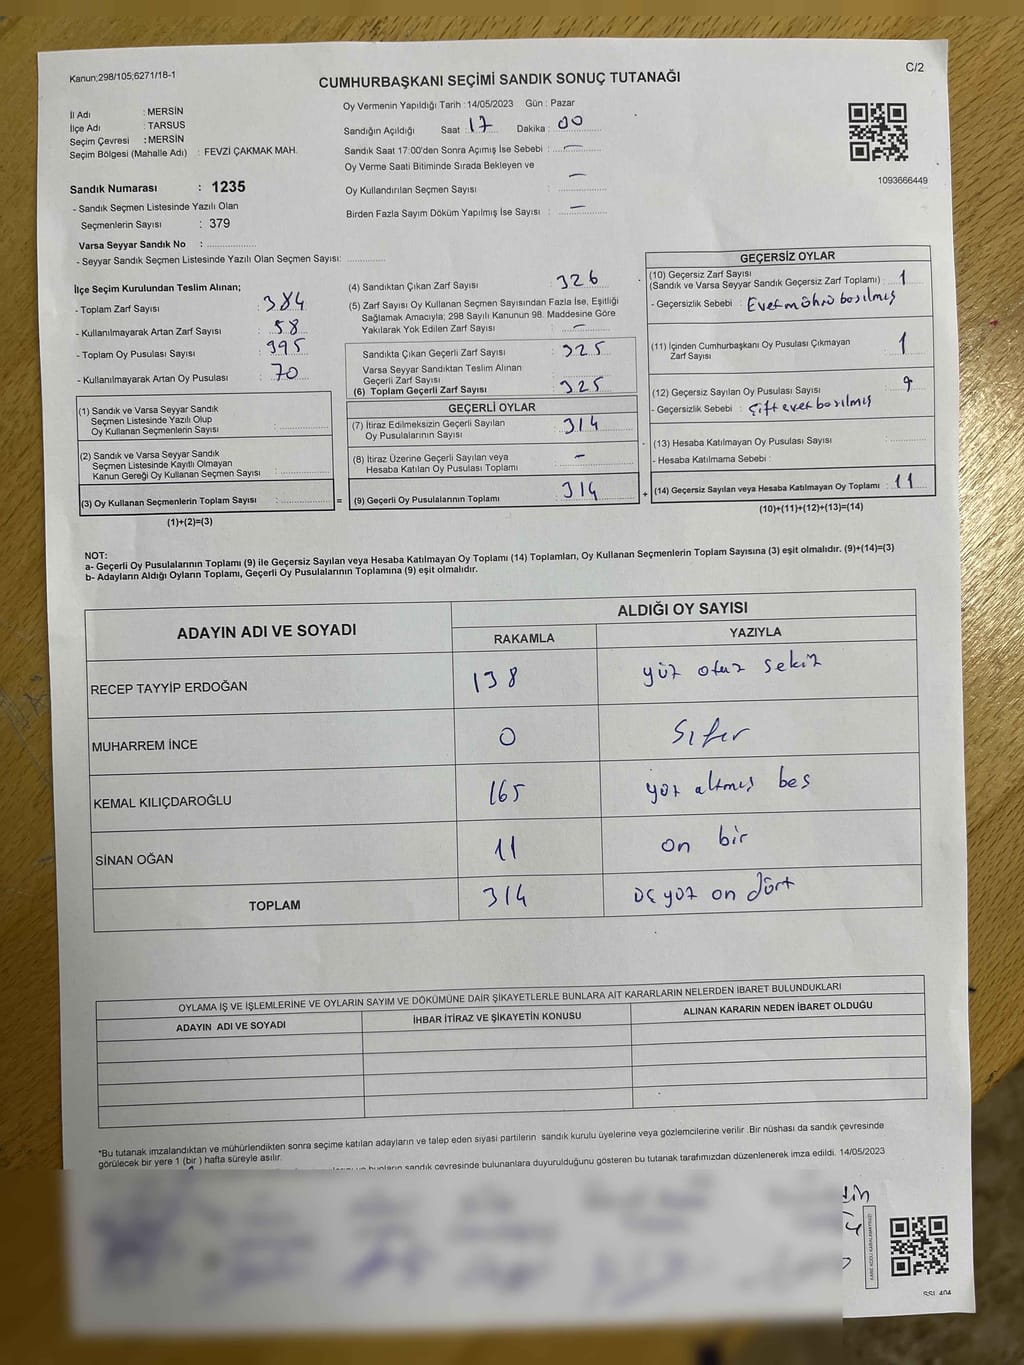 Kanun;298/105;6271/18-1
C/2
CUMHURBAŞKANI SEÇİMİ SANDIK SONUÇ TUTANAĞI
İl Adı : MERSİN
İlçe Adı : TARSUS
Seçim Çevresi : MERSİN
Seçim Bölgesi (Mahalle Adı) : FEVZİ ÇAKMAK MAH.
Oy Vermenin Yapıldığı Tarih : 14/05/2023 Gün : Pazar
Sandığın Açıldığı Saat : 17 Dakika : 00
Sandık Saat 17:00'den Sonra Açımış İse Sebebi : —
Oy Verme Saati Bitiminde Sırada Bekleyen ve
Oy Kullandırılan Seçmen Sayısı : —
Birden Fazla Sayım Döküm Yapılmış İse Sayısı : —
1093666449
Sandık Numarası : 1235
- Sandık Seçmen Listesinde Yazılı Olan
Seçmenlerin Sayısı : 379
Varsa Seyyar Sandık No :
- Seyyar Sandık Seçmen Listesinde Yazılı Olan Seçmen Sayısı:
İlçe Seçim Kurulundan Teslim Alınan;
- Toplam Zarf Sayısı : 384
- Kullanılmayarak Artan Zarf Sayısı : 58
- Toplam Oy Pusulası Sayısı : 395
- Kullanılmayarak Artan Oy Pusulası : 70
(1) Sandık ve Varsa Seyyar Sandık
Seçmen Listesinde Yazılı Olup
Oy Kullanan Seçmenlerin Sayısı :
(2) Sandık ve Varsa Seyyar Sandık
Seçmen Listesinde Kayıtlı Olmayan
Kanun Gereği Oy Kullanan Seçmen Sayısı :
(3) Oy Kullanan Seçmenlerin Toplam Sayısı :
(1)+(2)=(3)
=
(4) Sandıktan Çıkan Zarf Sayısı : 326
(5) Zarf Sayısı Oy Kullanan Seçmen Sayısından Fazla İse, Eşitliği
Sağlamak Amacıyla; 298 Sayılı Kanunun 98. Maddesine Göre
Yakılarak Yok Edilen Zarf Sayısı : —
Sandıkta Çıkan Geçerli Zarf Sayısı : 325
Varsa Seyyar Sandıktan Teslim Alınan
Geçerli Zarf Sayısı :
(6) Toplam Geçerli Zarf Sayısı : 325
GEÇERLİ OYLAR
(7) İtiraz Edilmeksizin Geçerli Sayılan
Oy Pusulalarının Sayısı : 314
(8) İtiraz Üzerine Geçerli Sayılan veya
Hesaba Katılan Oy Pusulası Toplamı : –
(9) Geçerli Oy Pusulalarının Toplamı : 314
+
GEÇERSİZ OYLAR
(10) Geçersiz Zarf Sayısı
(Sandık ve Varsa Seyyar Sandık Geçersiz Zarf Toplamı) : 1
- Geçersizlik Sebebi : Evet mührü basılmış
(11) İçinden Cumhurbaşkanı Oy Pusulası Çıkmayan
Zarf Sayısı : 1
(12) Geçersiz Sayılan Oy Pusulası Sayısı : 9
- Geçersizlik Sebebi : Çift evet basılmış
(13) Hesaba Katılmayan Oy Pusulası Sayısı :
- Hesaba Katılmama Sebebi :
(14) Geçersiz Sayılan veya Hesaba Katılmayan Oy Toplamı : 11
(10)+(11)+(12)+(13)=(14)
NOT:
a- Geçerli Oy Pusulalarının Toplamı (9) ile Geçersiz Sayılan veya Hesaba Katılmayan Oy Toplamı (14) Toplamları, Oy Kullanan Seçmenlerin Toplam Sayısına (3) eşit olmalıdır. (9)+(14)=(3)
b- Adayların Aldığı Oyların Toplamı, Geçerli Oy Pusulalarının Toplamına (9) eşit olmalıdır.
ADAYIN ADI VE SOYADI
ALDIĞI OY SAYISI
RAKAMLA YAZIYLA
RECEP TAYYİP ERDOĞAN 138 yüz otuz sekiz
MUHARREM İNCE 0 Sıfır
KEMAL KILIÇDAROĞLU 165 yüz altmış beş
SİNAN OĞAN 11 on bir
TOPLAM 314 üç yüz on dört
OYLAMA İŞ VE İŞLEMLERİNE VE OYLARIN SAYIM VE DÖKÜMÜNE DAİR ŞİKAYETLERLE BUNLARA AİT KARARLARIN NELERDEN İBARET BULUNDUKLARI
ADAYIN ADI VE SOYADI İHBAR İTİRAZ VE ŞİKAYETİN KONUSU ALINAN KARARIN NEDEN İBARET OLDUĞU
*Bu tutanak imzalandıktan ve mühürlendikten sonra seçime katılan adayların ve talep eden siyasi partilerin sandık kurulu üyelerine veya gözlemcilerine verilir .Bir nüshası da sandık çevresinde
görülecek bir yere 1 (bir ) hafta süreyle asılır.
bunların sandık çevresinde bulunanlara duyurulduğunu gösteren bu tutanak tarafımızdan düzenlenerek imza edildi. 14/05/2023